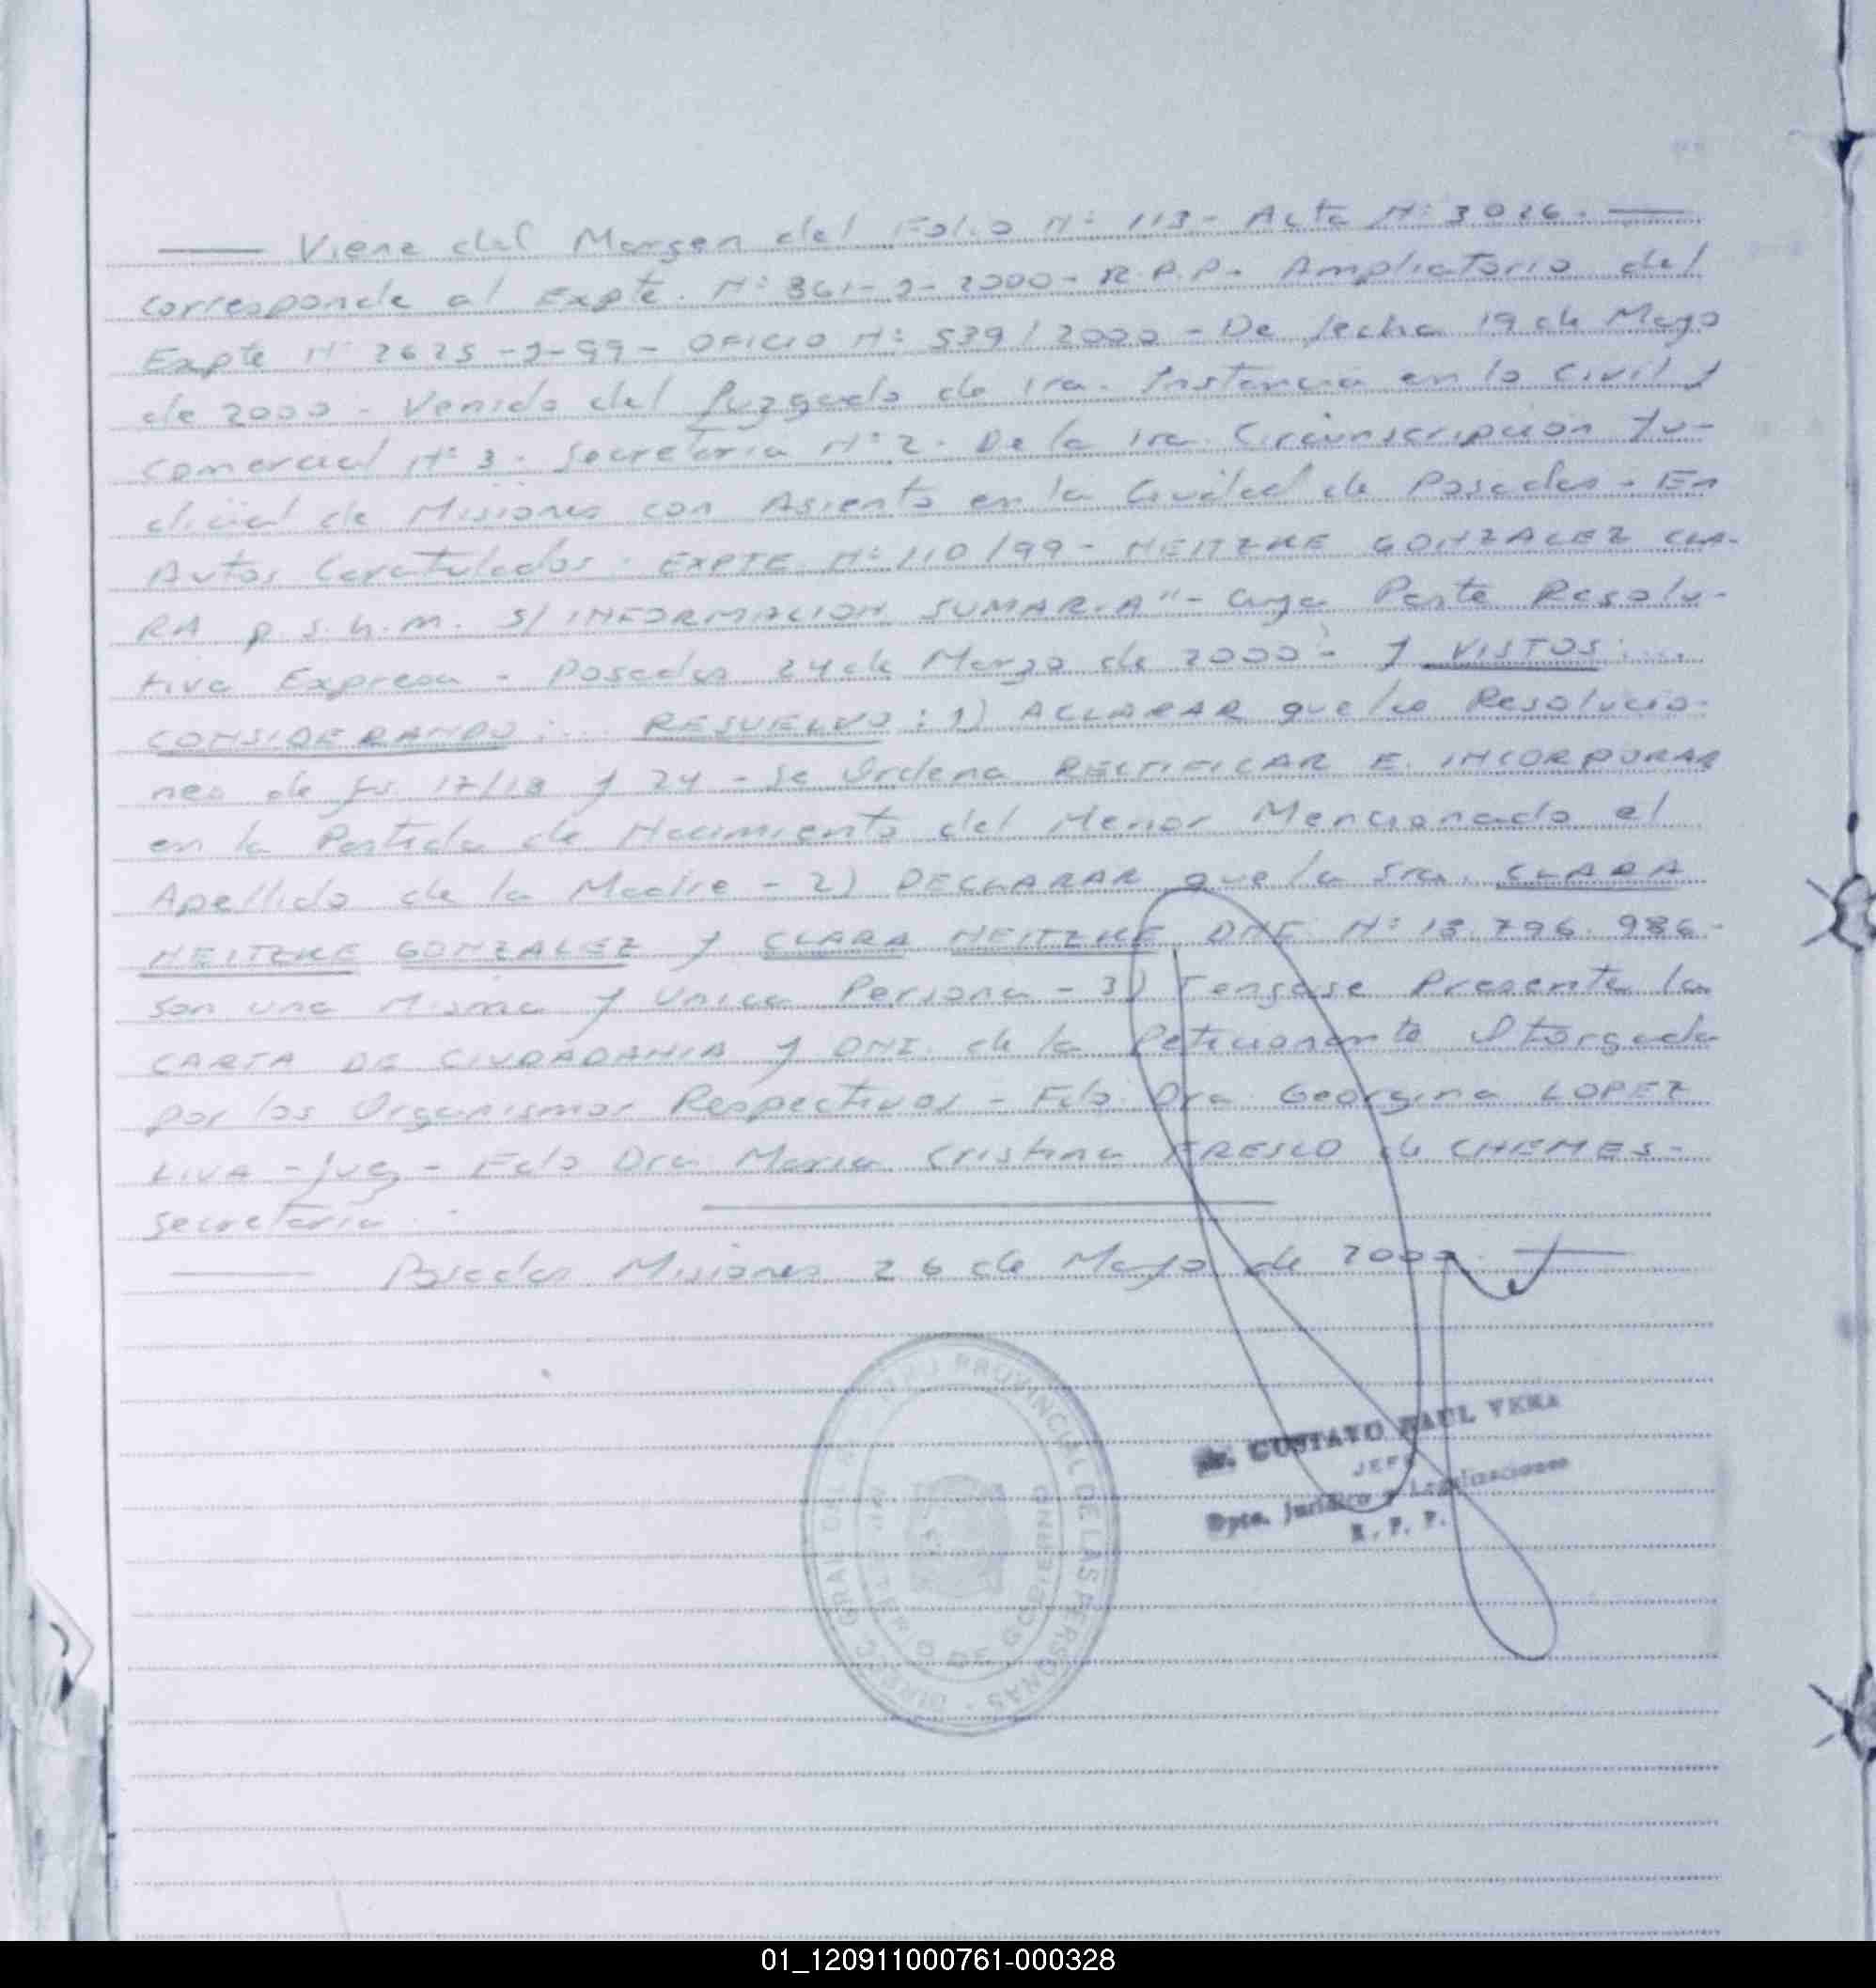 Viene del Margen del Folio Nº 113 - Acta Nº 3026.
corresponde al Expte. Nº 861-J-2000- R.P.P. Ampliatorio del
Expte Nº 2625 -J-99- OFICIO Nº 539/2000 - De fecha 19 de Mayo
de 2000 - Venido del Juzgado de 1ra. Instancia en lo Civil y
Comercial Nº 3. Secretaria Nº 2. De la 1ra. Circunscripción Ju-
dicial de Misiones con Asiento en la Ciudad de Posadas - En
Autos Caratulados. EXPTE Nº 110/99 - HEITZKE GONZALEZ CLA-
RA p.s.h.m. S/ INFORMACION SUMARIA"- cuya Parte Resolu-
tiva Expresa - Posadas 24 de Marzo de 2000 - Y VISTOS:....
CONSIDERANDO:.... RESUELVO: 1) ACLARAR que las Resolucio-
nes de fs. 17/18 y 24 - Se Ordena RECTIFICAR E INCORPORAR
en la Partida de Nacimiento del Menor Mencionado el
Apellido de la Madre - 2) DECLARAR que la Sra. CLARA
HEITZKE GONZALEZ y CLARA HEITZKE DNI Nº 18.796.986-
son una Misma y Unica Persona - 3) Tengase Presente la
CARTA DE CIUDADANIA y DNI. de la Peticionante Otorgada
por los Organismos Respectivos - Fdo. Dra. Georgina LOPEZ
LIVA - Juez - Fdo Dra Maria Cristina FRESCO de CHEMES -
Secretaria.
Posadas Misiones 26 de Mayo de 2000.
PROVINCIAL DE LAS PERSONAS - DIREC. GRAL DEL
MINISTERIO DE GOBIERNO
GUSTAVO RAUL VERA
JEFE
Dpto. Jurídico y Legalizaciones
R. P. P.
01_120911000761-000328